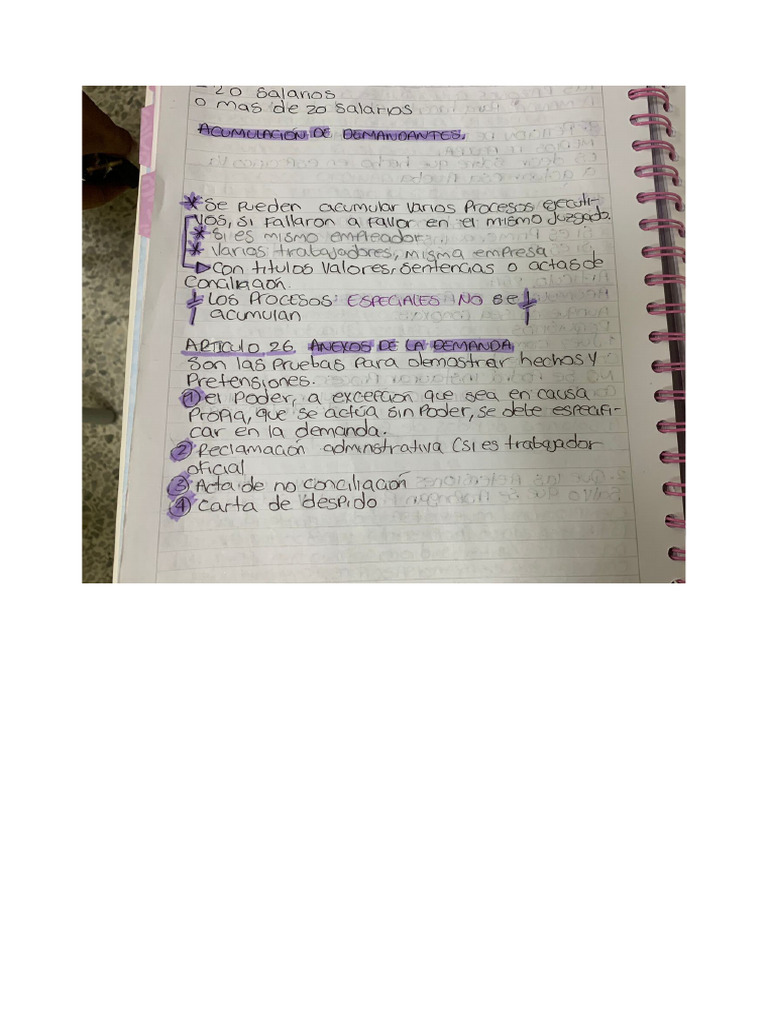 - 20 salarios
o mas de 20 salarios
ACUMULACIÓN DE DEMANDANTES.
* Se pueden acumular varios procesos ejecuti-
vos, si fallaron a favor en el mismo juzgado.
* Si es mismo empleador
* Varios trabajadores, misma empresa
Con titulos valores, sentencias o actas de
conciliación.
Los procesos ESPECIALES NO se
acumulan
ARTICULO 26. ANEXOS DE LA DEMANDA
Son las pruebas para demostrar hechos y
pretensiones.
① el poder, a excepción que sea en causa
propia, que se actúa sin poder, se debe especifi-
car en la demanda.
② Reclamación adminstrativa (si es trabajador
oficial
③ Acta de no conciliación
④ Carta de despido